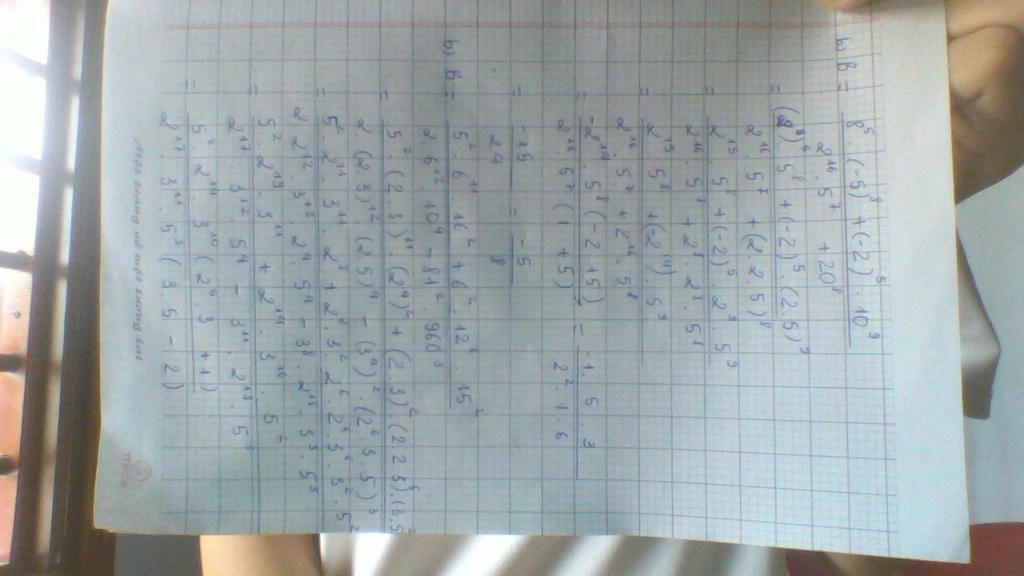 b) B = 8^5 . (-5)^8 + (-2)^5 . 10^9
2^16 . 5^7 + 20^8
= (2^3)^5 . 5^8 + (-2)^5 . (2.5)^9
2^16 . 5^7 + (2.2.5)^8
= 2^15 . 5^8 + (-2)^5 . 2^9 . 5^9
2^16 . 5^7 + 2^8 . 2^8 . 5^8
= 2^15 . 5^8 + (-2^14) . 5^9
2^16 . 5^7 + 2^16 . 5^8
= -2^14 . 5^8 (-2 + 5) = -1 . 5 . 3
2^16 . 5^7 (1 + 5) 2^2 . 1 . 6
= -15 = -5
24 8
b) B = 5^2 . 6^11 . 16^2 + 6^2 . 12^6 . 15^2
2 . 6^12 . 10^4 - 81^2 . 960^3
= 5^2 . (2.3)^11 . (2^4)^2 + (2.3)^2 . (2.2.3)^6 . (3.5)^2
2 . (2.3)^12 . (2.5)^4 - (3^4)^2 . (2^6 . 3 . 5)^3
= 5^2 . 2^11 . 3^11 . 2^8 + 2^2 . 3^2 . 2^6 . 2^6 . 3^6 . 3^2 . 5^2
2 . 2^12 . 3^12 . 2^4 . 5^4 - 3^8 . 2^18 . 3^3 . 5^3
= 5^2 . 2^19 . 3^11 + 2^14 . 3^10 . 5^2
2^17 . 3^12 . 5^4 - 3^11 . 2^18 . 5^3
= 5^2 . 2^14 . 3^10 (2^5 . 3 + 1)
2^17 . 3^11 . 5^3 (3 . 5 - 2)